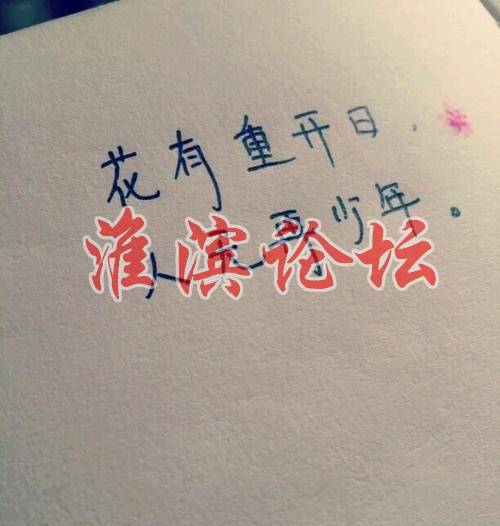 花有重开日.
人无再少年。
淮滨论坛